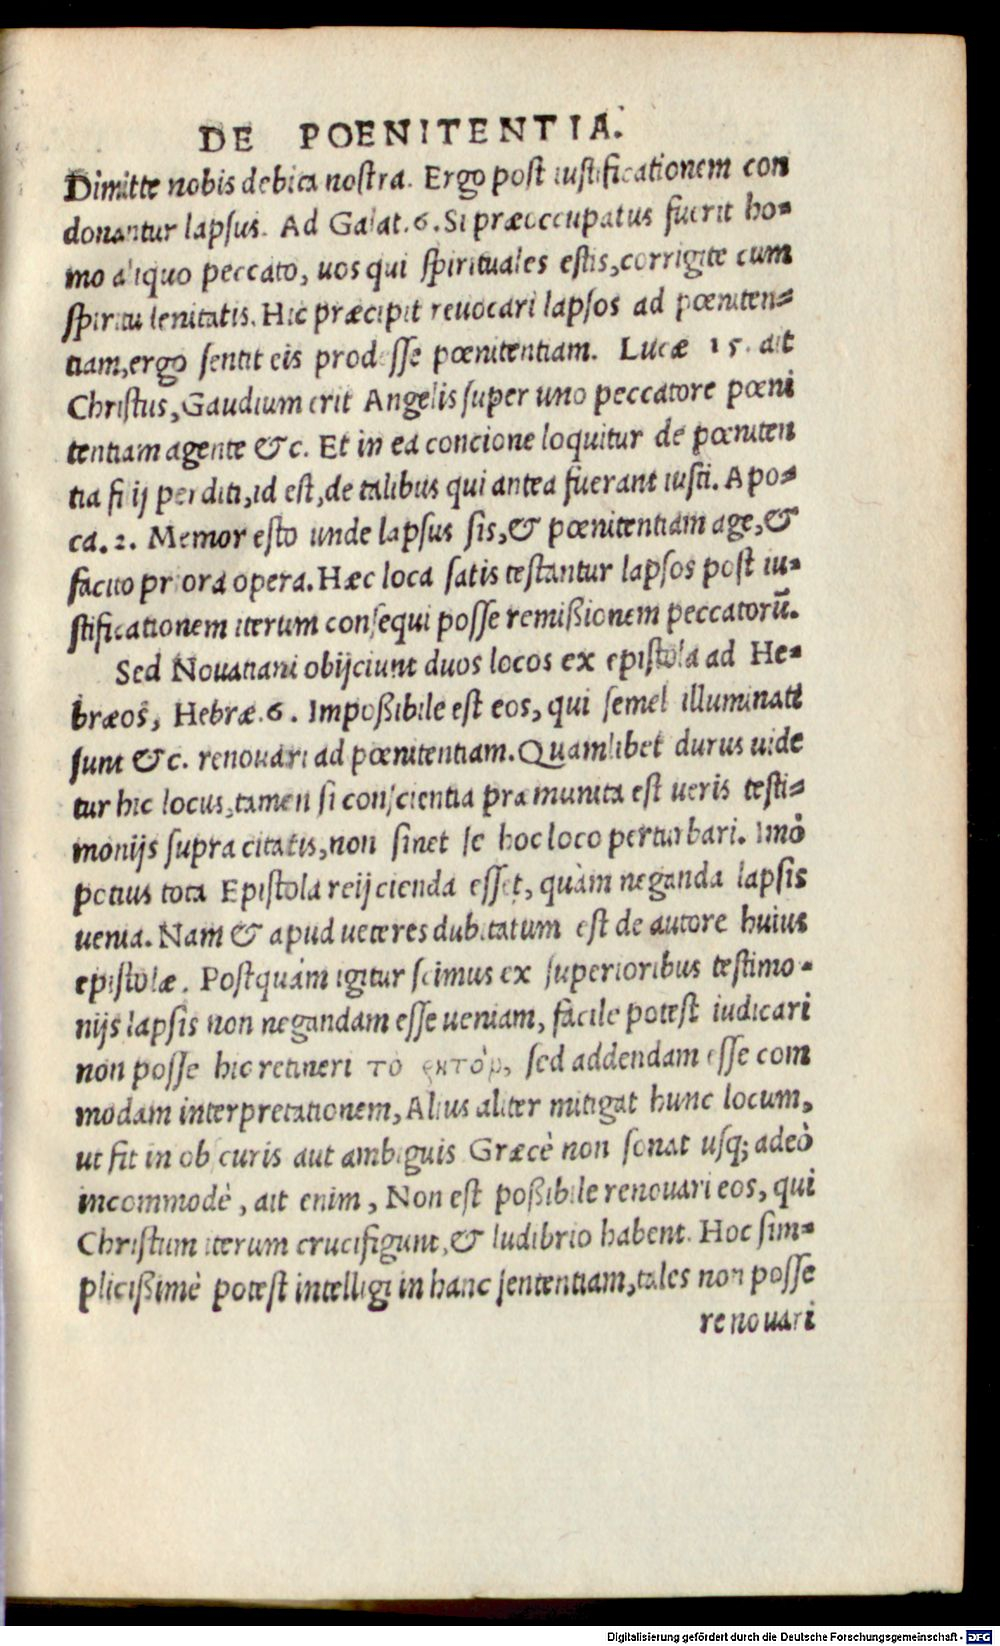 DE POENITENTIA.
Dimitte nobis debita nostra. Ergo post iustificationem con
donantur lapsus. Ad Galat. 6. Si præoccupatus fuerit ho-
mo aliquo peccato, uos qui spirituales estis, corrigite cum
spiritu lenitatis. Hic præcipit reuocari lapsos ad pœniten-
tiam, ergo sentit eis prodesse pœnitentiam. Lucæ 15. ait
Christus, Gaudium erit Angelis super uno peccatore pœni
tentiam agente &c. Et in ea concione loquitur de pœniten
tia filij perditi, id est, de talibus qui antea fuerant iusti. Apo-
ca. 2. Memor esto unde lapsus sis, & pœnitentiam age, &
facito priora opera. Hæc loca satis testantur lapsos post iu-
stificationem iterum consequi posse remißionem peccatorū.
Sed Nouatiani obijciunt duos locos ex epistola ad He-
bræos, Hebræ. 6. Impoßibile est eos, qui semel illuminati
sunt &c. renouari ad pœnitentiam. Quamlibet durus uide
tur hic locus, tamen si conscientia præmunita est ueris testi-
monijs supra citatis, non sinet se hoc loco perturbari. Imò
potius tota Epistola reijcienda esset, quàm neganda lapsis
uenia. Nam & apud ueteres dubitatum est de autore huius
epistolæ. Postquàm igitur scimus ex superioribus testimo-
nijs lapsis non negandam esse ueniam, facile potest iudicari
non posse hic retineri το ῥητὸν, sed addendam esse com
modam interpretationem, Alius aliter mitigat hunc locum,
ut fit in obscuris aut ambiguis Græcè non sonat usq; adeò
incommodè, ait enim, Non est poßibile renouari eos, qui
Christum iterum crucifigunt, & ludibrio habent. Hoc sim-
plicißimè potest intelligi in hanc sententiam, tales non posse
renouari
Digitalisierung gefördert durch die Deutsche Forschungsgemeinschaft - DFG